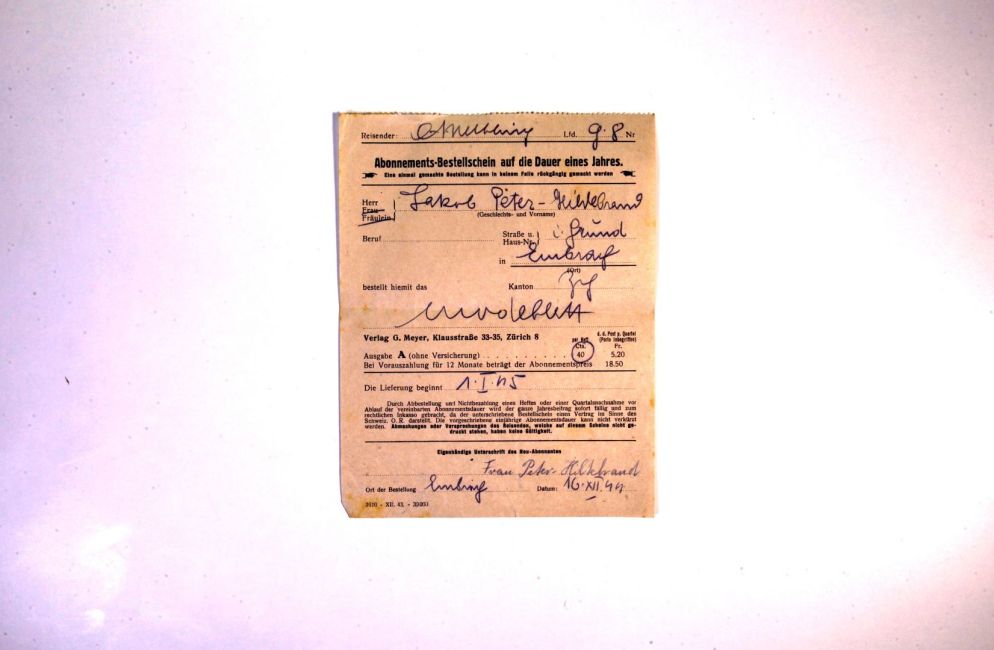 Reisender: Lfd. 9.8 Nr
Abonnements-Bestellschein auf die Dauer eines Jahres.
Eine einmal gemachte Bestellung kann in keinem Falle rückgängig gemacht werden
Herr Jakob Peter-Hildebrand
Frau
Fräulein (Geschlechts- und Vorname)
Beruf Straße u. Haus-Nr. i. Grund
in Embrach
(Ort)
bestellt hiemit das Kanton Zh
Modeblatt
Verlag G. Meyer, Klausstraße 33-35, Zürich 8 per Heft d. d. Post p. Quartal
Cts. (Porto inbegriffen) Fr.
Ausgabe A (ohne Versicherung) . . . . . . . . . . 40 5.20
Bei Vorauszahlung für 12 Monate beträgt der Abonnementspreis 18.50
Die Lieferung beginnt 1.I.45
Durch Abbestellung und Nichtbezahlung eines Heftes oder einer Quartalsnachnahme vor
Ablauf der vereinbarten Abonnementsdauer wird der ganze Jahresbeitrag sofort fällig und zum
rechtlichen Inkasso gebracht, da der unterschriebene Bestellschein einen Vertrag im Sinne des
Schweiz. O. R. darstellt. Die vorgeschriebene einjährige Abonnementsdauer kann nicht verkürzt
werden. Abmachungen oder Versprechungen des Reisenden, welche auf diesem Scheine nicht ge-
druckt stehen, haben keine Gültigkeit.
Eigenhändige Unterschrift des Neu-Abonnenten
Frau Peter-Hildebrand
Ort der Bestellung Embrach Datum: 16.XII.44
- XII. 43. -